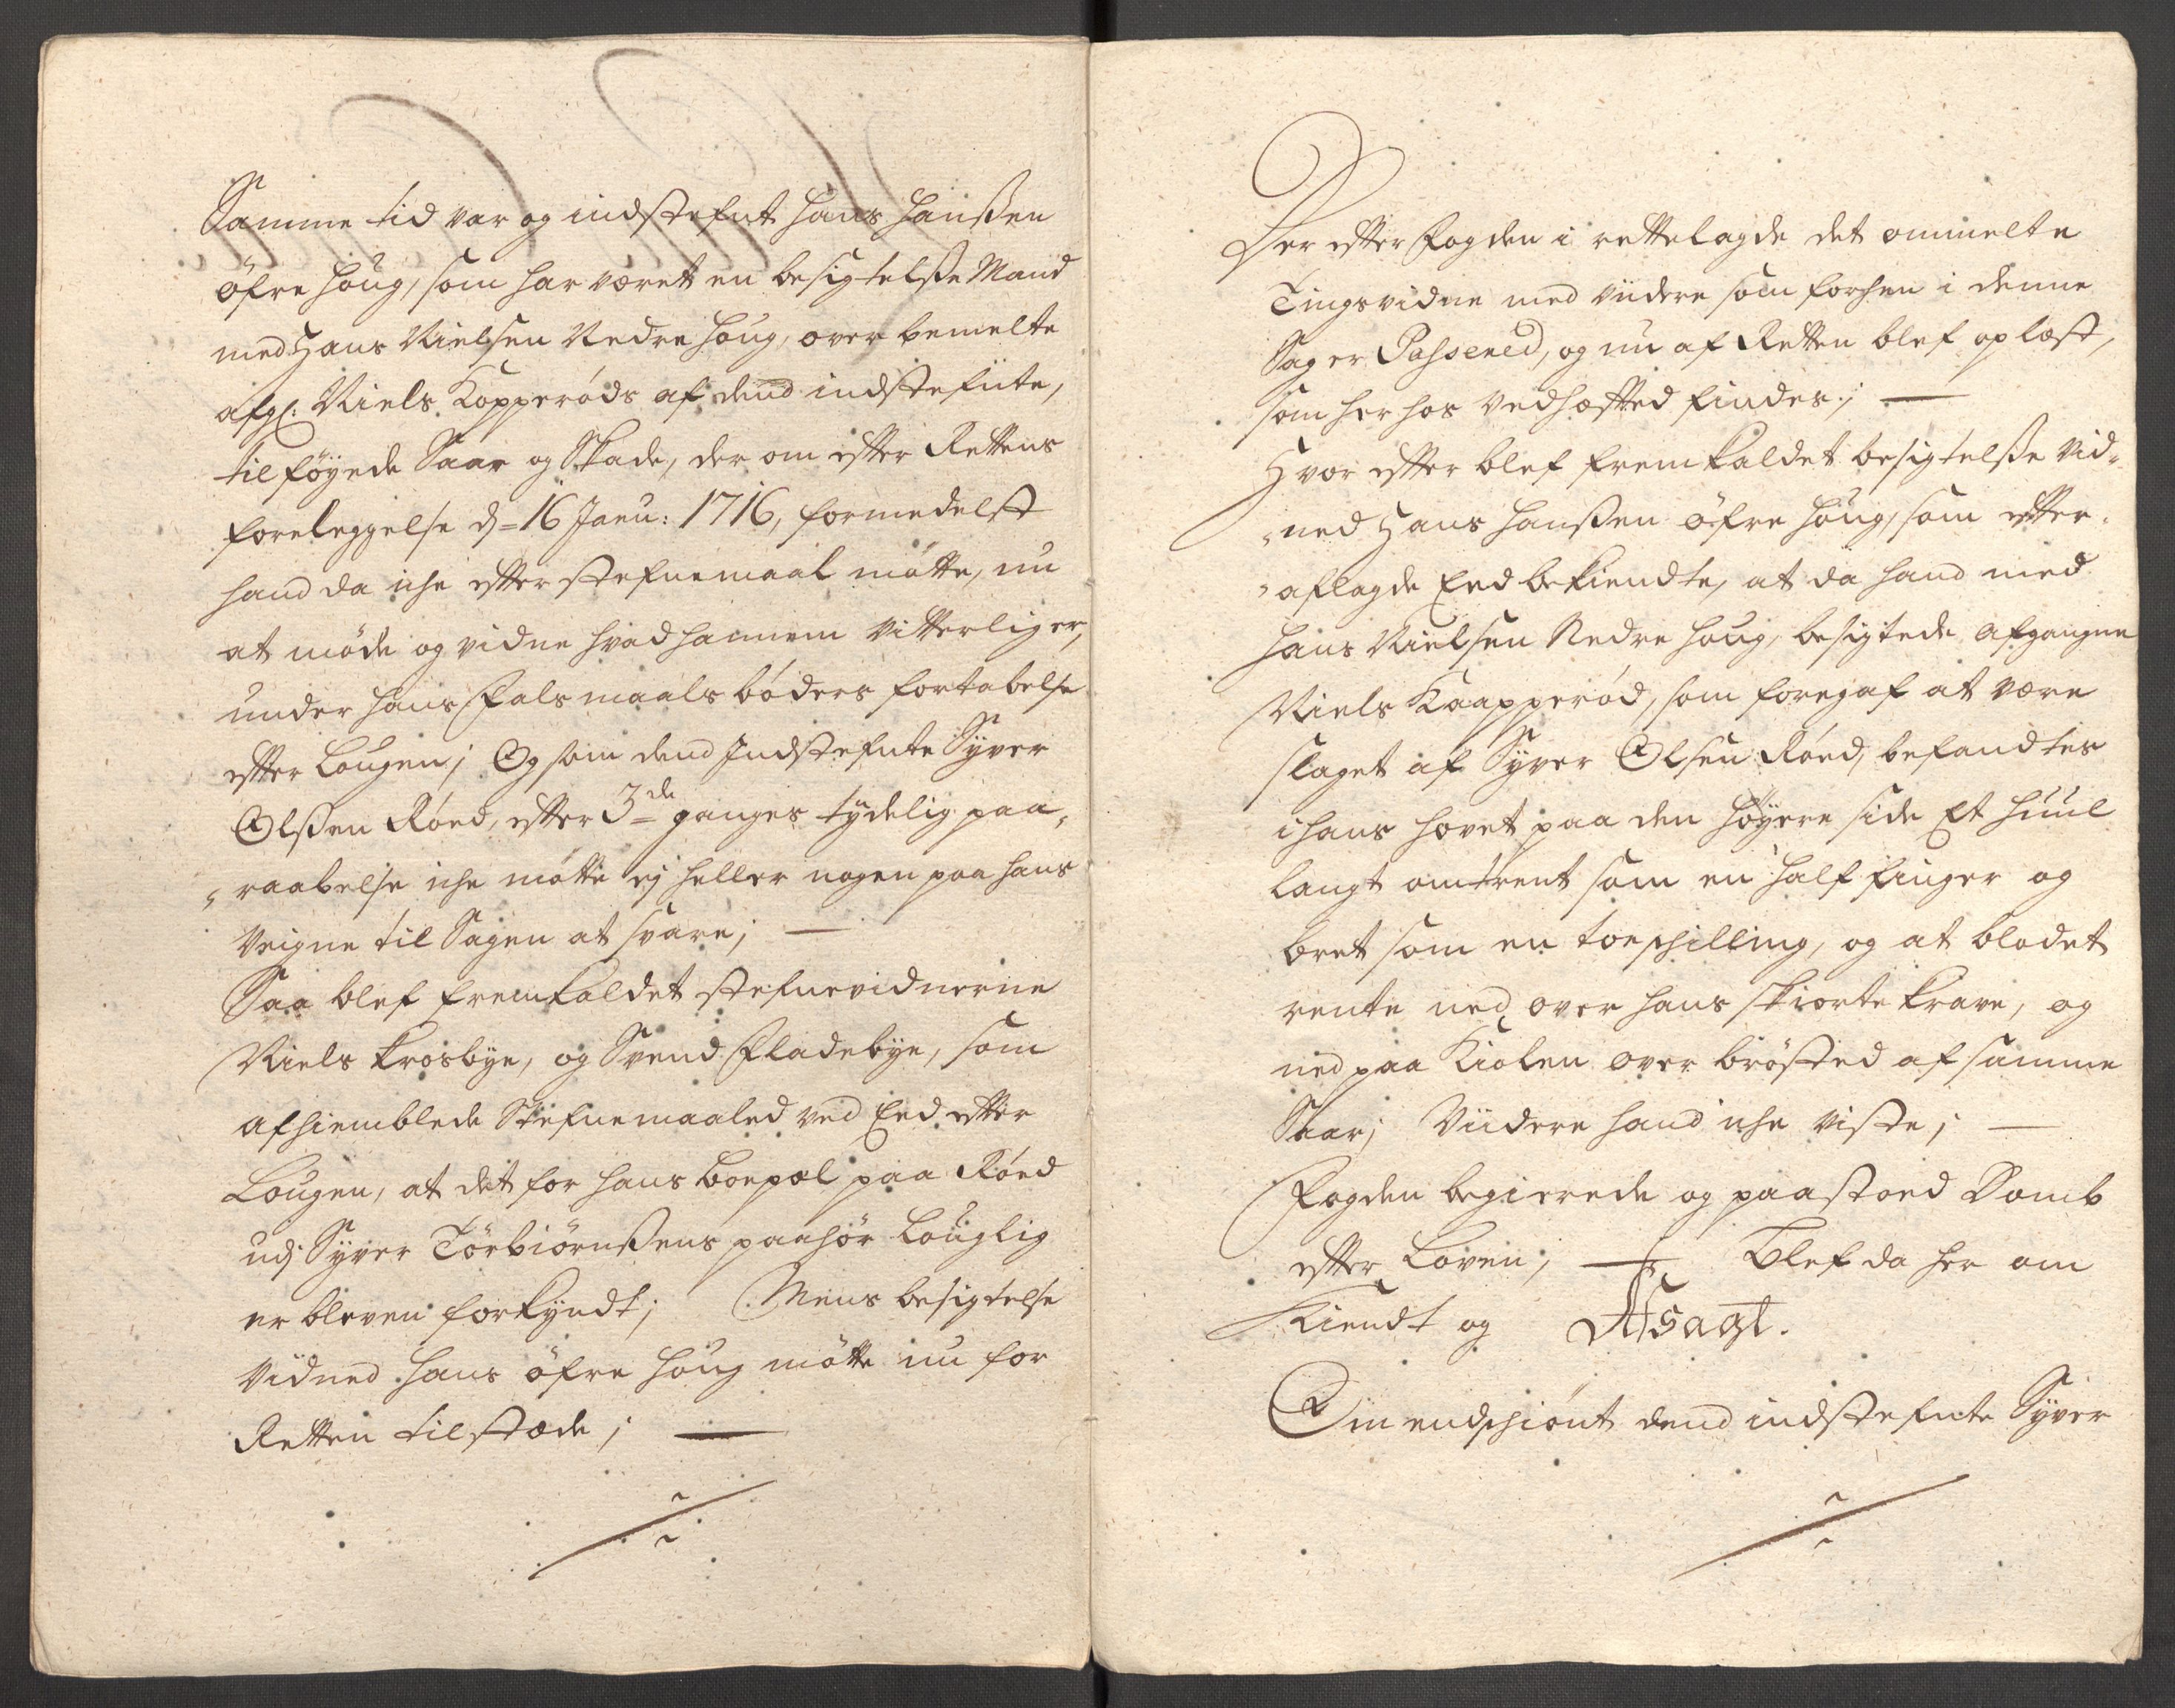 Samme tid var og indstefnt Hans Hanßen
øfre Houg, som har været en besigtelße Mand
med Hans Nielsen Nedre Houg, over bemelte
afg: Niels Kopperøds af dend indstefnte,
tilføyede Saar og Skade, der om efter Rettens
foreleggelse d= 16 Janu: 1716, formedelst
hand da iche efter stefnemaal møtte, nu
at møde og vidne hvad hannem vitterlig er,
under hans Falsmaals bøders fortabelse
efter Lougen; Og som dend Indstefnte Syver
Olßen Røed, efter 3de ganges tydelig paa„
„raabelse iche møtte ej heller nogen paa hans
Veigne til Sagen at svare; —
Saa blef fremkaldet stefnevidnerne
Niels Krosbye, og Svend Fladebye, som
afhiemblede Stefnemaaled ved Eed efter
Lougen, at det for hans boepæl paa Røed
udj Syver Tørbiørnßens paahør louglig
er bleven forkyndt; Mens besigtelse
Vidned Hans øfre Houg møtte nu for
Retten tilstæde; —
Der efter Fogden i rettelagde det ommelte
Tingsvidne med viidere som forhen i denne
Sag er Passered, og nu af Retten blef oplæst,
som her hos vedhæfted findes; —
Hvor efter blef fremkaldet besigtelße vid„
„ned Hans Hanßen øfre Houg, som efter
„aflagde Eed bekiendte, at da hand med
Hans Nielsen Nedre Houg, besigtede afgangne
Niels Kaapperød, som foregaf at være
slaget af Syver Olsen Røed, befandtes
i hans hovet paa den høyere side Et huul
langt omtrent som en half finger og
bret som en toeschilling, og at blodet
rente ned over hans skiorte krave, og
ned paa Kiolen over brøsted af samme
Saar; Viidere hand iche viste; —
Fogden begierede og paastoed Domb
efter Loven; — Blef da her om
Kiendt og Afsagt.
Om endschiønt dend indstefnte Syver